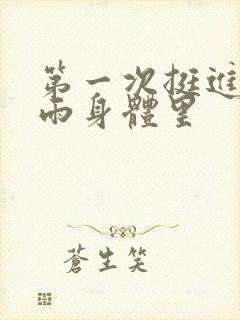 第一次挺進
兩身體里
蒼生笑